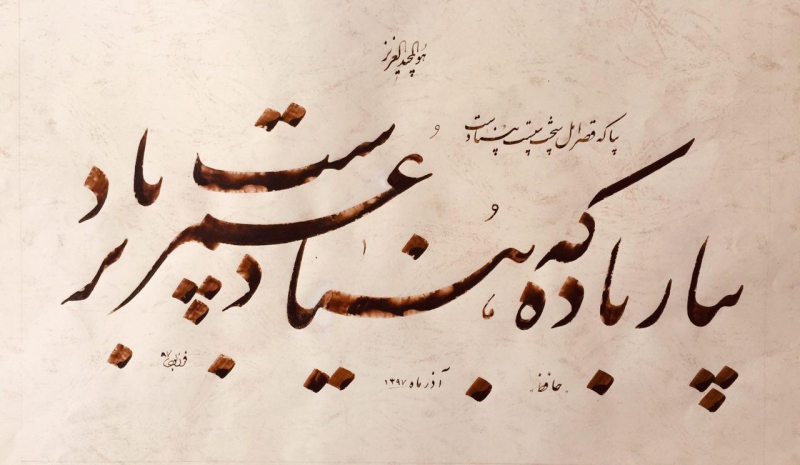 هو العزیز
بیا که قصر امل سخت سست بنیادست
بیار باده که بنیاد عمر بر بادست
حافظ
آذر ماه ۱۳۹۷